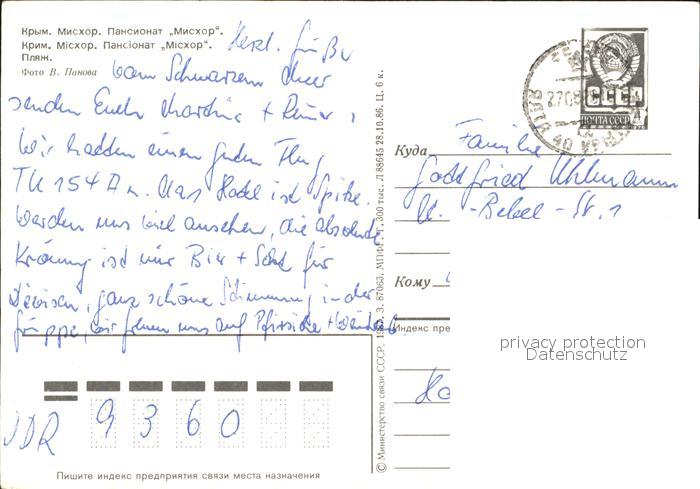 Крым. Мисхор. Пансионат „Мисхор“.
Крим. Місхор. Пансіонат „Місхор“.
Пляж.
Фото В. Панова
Herzl. Grüße
vom Schwarzen Meer
senden Euch Martina + Reiner,
Wir hatten einen guten Flug
TU 154 A. Das Hotel ist Spitze.
Werden uns viel ansehen, die absolute
Krönung ist nur Bier + Sekt für
Devisen, ganz schöne Stimmung in der
Gruppe, wir freuen uns auf Pfirsiche +
DDR 9360
Пишите индекс предприятия связи места назначения
© Министерство связи СССР. З. 87063. МПФГ. Т. 300 тыс. 28.10.86. Ц. 6 к.
СССР
ПОЧТА СССР
Куда
Familie
Gottfried Uhlmann
-Bebel-Str. 1
Кому
Индекс пре
privacy protection
Datenschutz